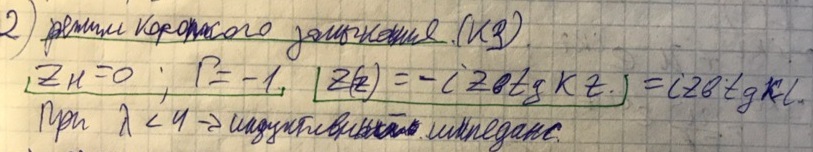 2) режим короткого замыкания. (КЗ)
Zн=0 ; Г=-1, Z(z) = -i Zв tg K z. = i Zв tg Kl.
При λ < 4 → индуктивный импеданс.